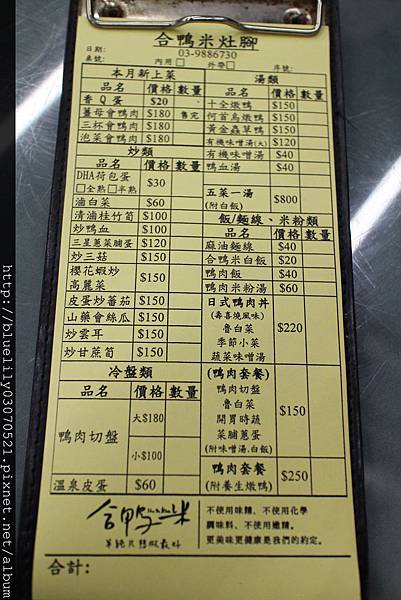 合鴨米灶腳
03-9886730
日期:
桌號: 內用□ 外帶□ 序號:
本月新上菜
品名 價格 數量
香Q蛋 $20
薑母會鴨肉 $180 售完
三杯會鴨肉 $180
泡菜會鴨肉 $180
炒類
品名 價格 數量
DHA荷包蛋
□全熟□半熟 $30
滷白菜 $60
清滷桂竹筍 $100
炒鴨血 $100
三星蔥菜脯蛋 $120
炒三菇 $150
櫻花蝦炒
高麗菜 $150
皮蛋炒蕃茄 $150
山藥會絲瓜 $150
炒雲耳 $150
炒甘蔗筍 $150
冷盤類
品名 價格 數量
鴨肉切盤 大$180
小$100
溫泉皮蛋 $60
湯類
品名 價格 數量
十全燉鴨 $150
何首烏燉鴨 $150
黃金蟲草鴨 $150
有機味噌湯(大) $120
有機味噌湯 $40
鴨血湯 $40
五菜一湯
(附白飯) $800
飯/麵線、米粉類
品名 價格 數量
麻油麵線 $40
合鴨米白飯 $20
鴨肉飯 $40
鴨肉米粉湯 $60
日式鴨肉丼
(壽喜燒風味)
魯白菜
季節小菜
蔬菜味噌湯 $220
(鴨肉套餐)
鴨肉切盤
魯白菜
開胃時蔬
菜脯蔥蛋
(附味噌湯.白飯) $150
鴨肉套餐
(附養生燉鴨) $250
合鴨米
不使用味精、不使用化學
調味料、不使用嫩精。
更美味更健康是我們的約定。
合計:
http://bluelily03070521.pixnet.net/album